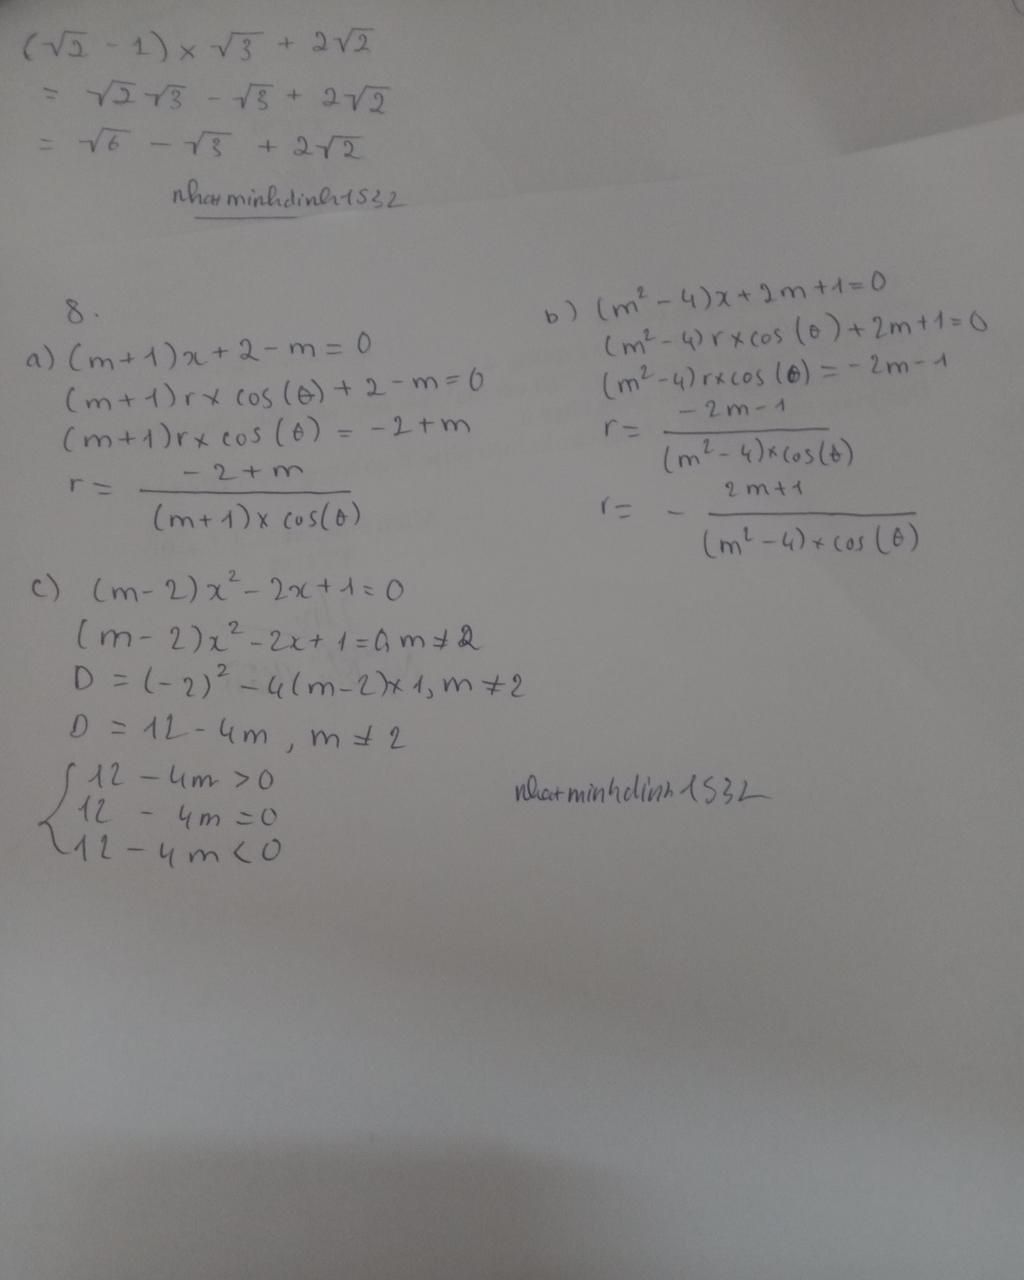 (√2 - 1) × √3 + 2√2
= √2 √3 - √3 + 2√2
= √6 - √3 + 2√2
nhatminhdinh1532
8.
a) (m+1)x + 2 - m = 0
(m+1)r × cos(θ) + 2 - m = 0
(m+1)r × cos(θ) = -2 + m
r = (-2 + m) / ((m+1) × cos(θ))
b) (m² - 4)x + 2m + 1 = 0
(m² - 4)r × cos(θ) + 2m + 1 = 0
(m² - 4)r × cos(θ) = -2m - 1
r = (-2m - 1) / ((m² - 4) × cos(θ))
r = - (2m + 1) / ((m² - 4) × cos(θ))
c) (m - 2)x² - 2x + 1 = 0
(m - 2)x² - 2x + 1 = 0, m ≠ 2
D = (-2)² - 4(m - 2) × 1, m ≠ 2
D = 12 - 4m, m ≠ 2
{ 12 - 4m > 0
12 - 4m = 0
12 - 4m < 0
nhatminhdinh1532